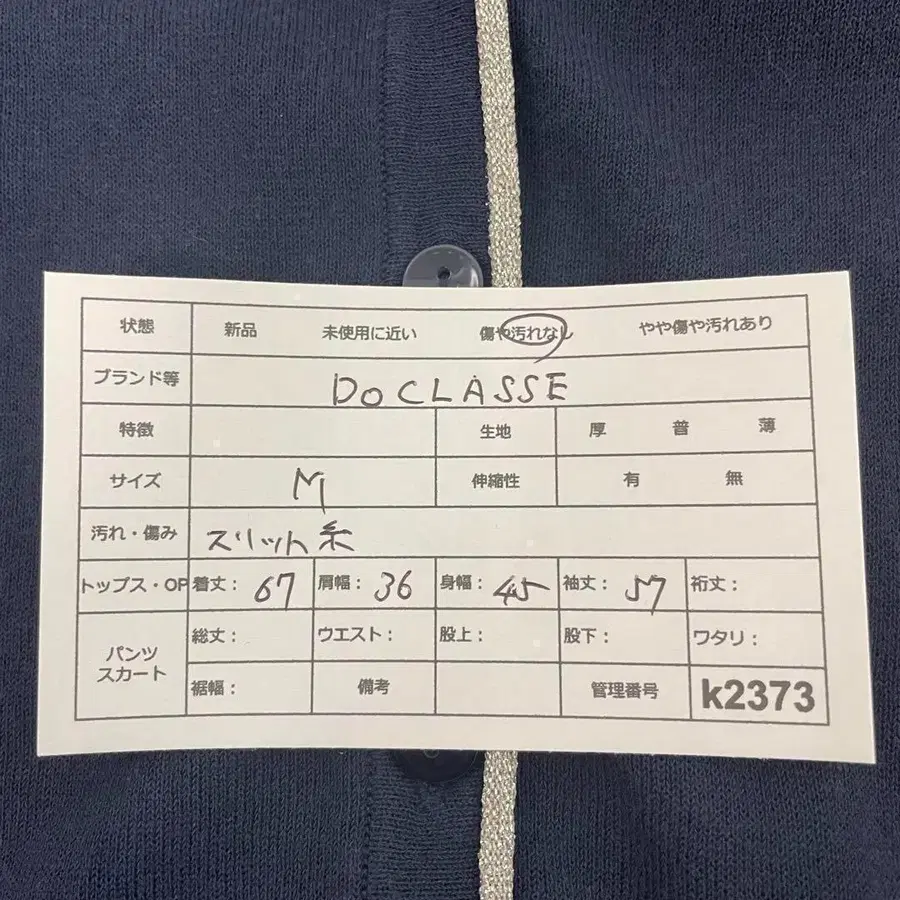 状態 新品 未使用に近い 傷や汚れなし やや傷や汚れあり
ブランド等 DoCLASSE
特徴 生地 厚 普 薄
サイズ M 伸縮性 有 無
汚れ・傷み スリット糸
トップス・OP 着丈： 67 肩幅： 36 身幅： 45 袖丈： 57 裄丈：
パンツ スカート 総丈： ウエスト： 股上： 股下： ワタリ：
裾幅： 備考 管理番号 k2373